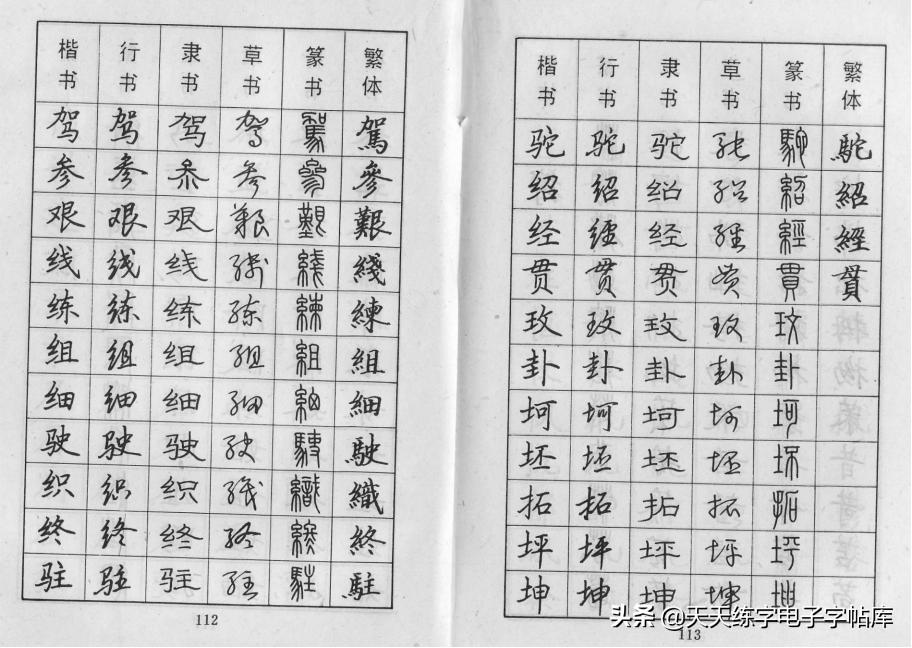 楷书 行书 隶书 草书 篆书 繁体
驾 驾 驾 驾 駕 駕
参 参 参 参 參 參
艰 艰 艰 艰 艱 艱
线 线 线 线 綫 綫
练 练 练 练 練 練
组 组 组 组 組 組
细 细 细 细 細 細
驶 驶 驶 驶 駛 駛
织 织 织 织 織 織
终 终 终 终 終 終
驻 驻 驻 驻 駐 駐
112
楷书 行书 隶书 草书 篆书 繁体
驼 驼 驼 驼 駝 駝
绍 绍 绍 绍 紹 紹
经 经 经 经 經 經
贯 贯 贯 贯 貫 貫
玫 玫 玫 玫 玫
卦 卦 卦 卦 卦
坷 坷 坷 坷 坷
坯 坯 坯 坯 坯
拓 拓 拓 拓 拓
坪 坪 坪 坪 坪
坤 坤 坤 坤 坤
113
头条 @天天练字电子字帖库